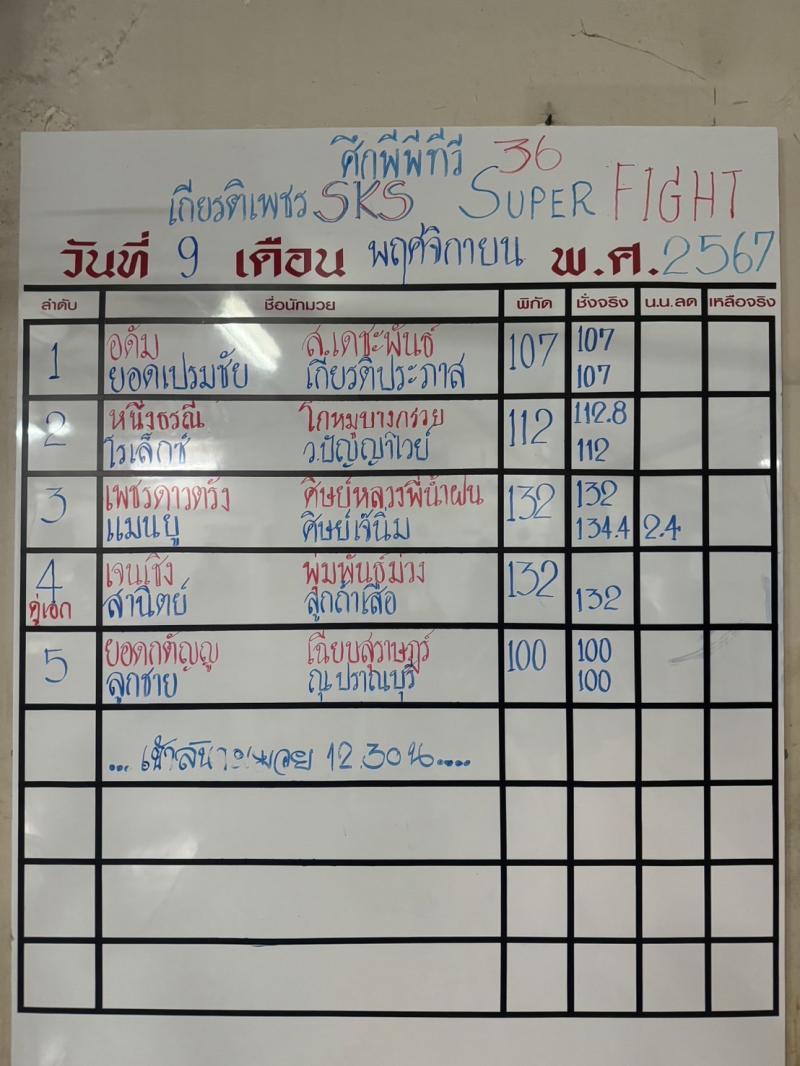 ศึกพีพีทีวี 36
เกียรติเพชร SKS SUPER FIGHT
วันที่ 9 เดือน พฤศจิกายน พ.ศ. 2567
ลำดับ ชื่อนักมวย พิกัด ชั่งจริง น.น.ลด เหลือจริง
1 อดัม ส.เดชะพันธ์ 107 107
ยอดเปรมชัย เกียรติประภาส 107
2 หนึ่งธรณี โกหมูบางกรวย 112 112.8
โรเล็กซ์ ว.ปัญญาไวย์ 112
3 เพชรดาวตรัง ศิษย์หลวงพี่น้ำฝน 132 132
แมนยู ศิษย์เจ๊นิ่ม 134.4 2.4
4 เจนเชิง พุ่มพันธ์ม่วง 132
คู่เอก สานิตย์ ลูกถ้ำเสือ 132
5 ยอดกตัญญู เฉียบสุราษฎร์ 100 100
ลูกชาย ณ ปราณบุรี 100
... เข้าสนามมวย 12.30 น.....